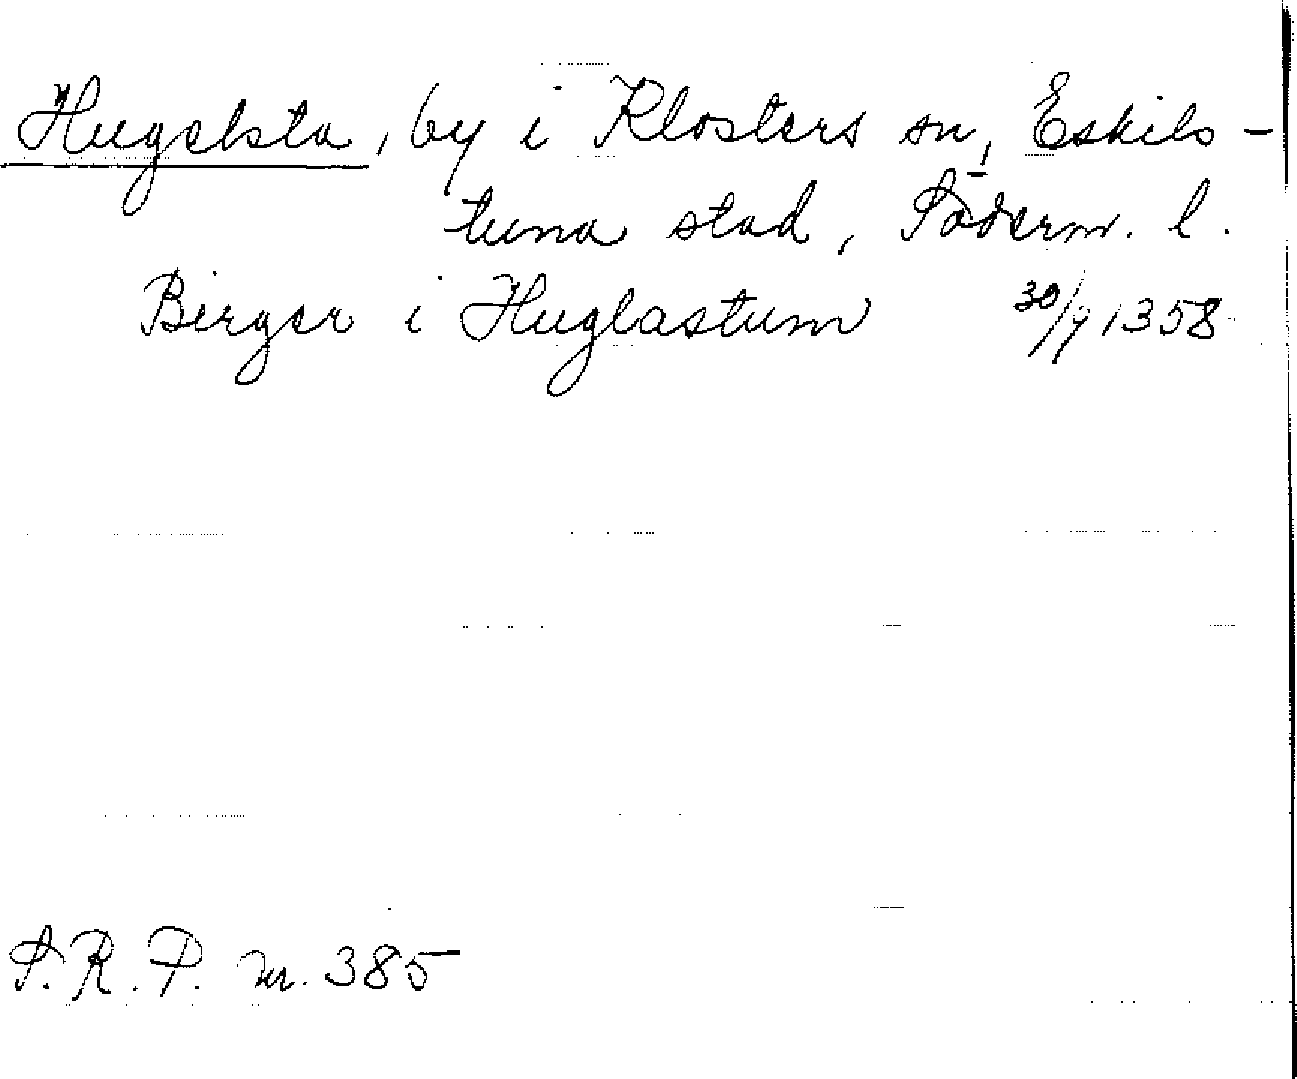 Hugelsta, by i Klosters sn, Eskils-
tuna stad, Söderm. l.
Birger i Huglastum 30/9 1358
S.R.P. nr. 385